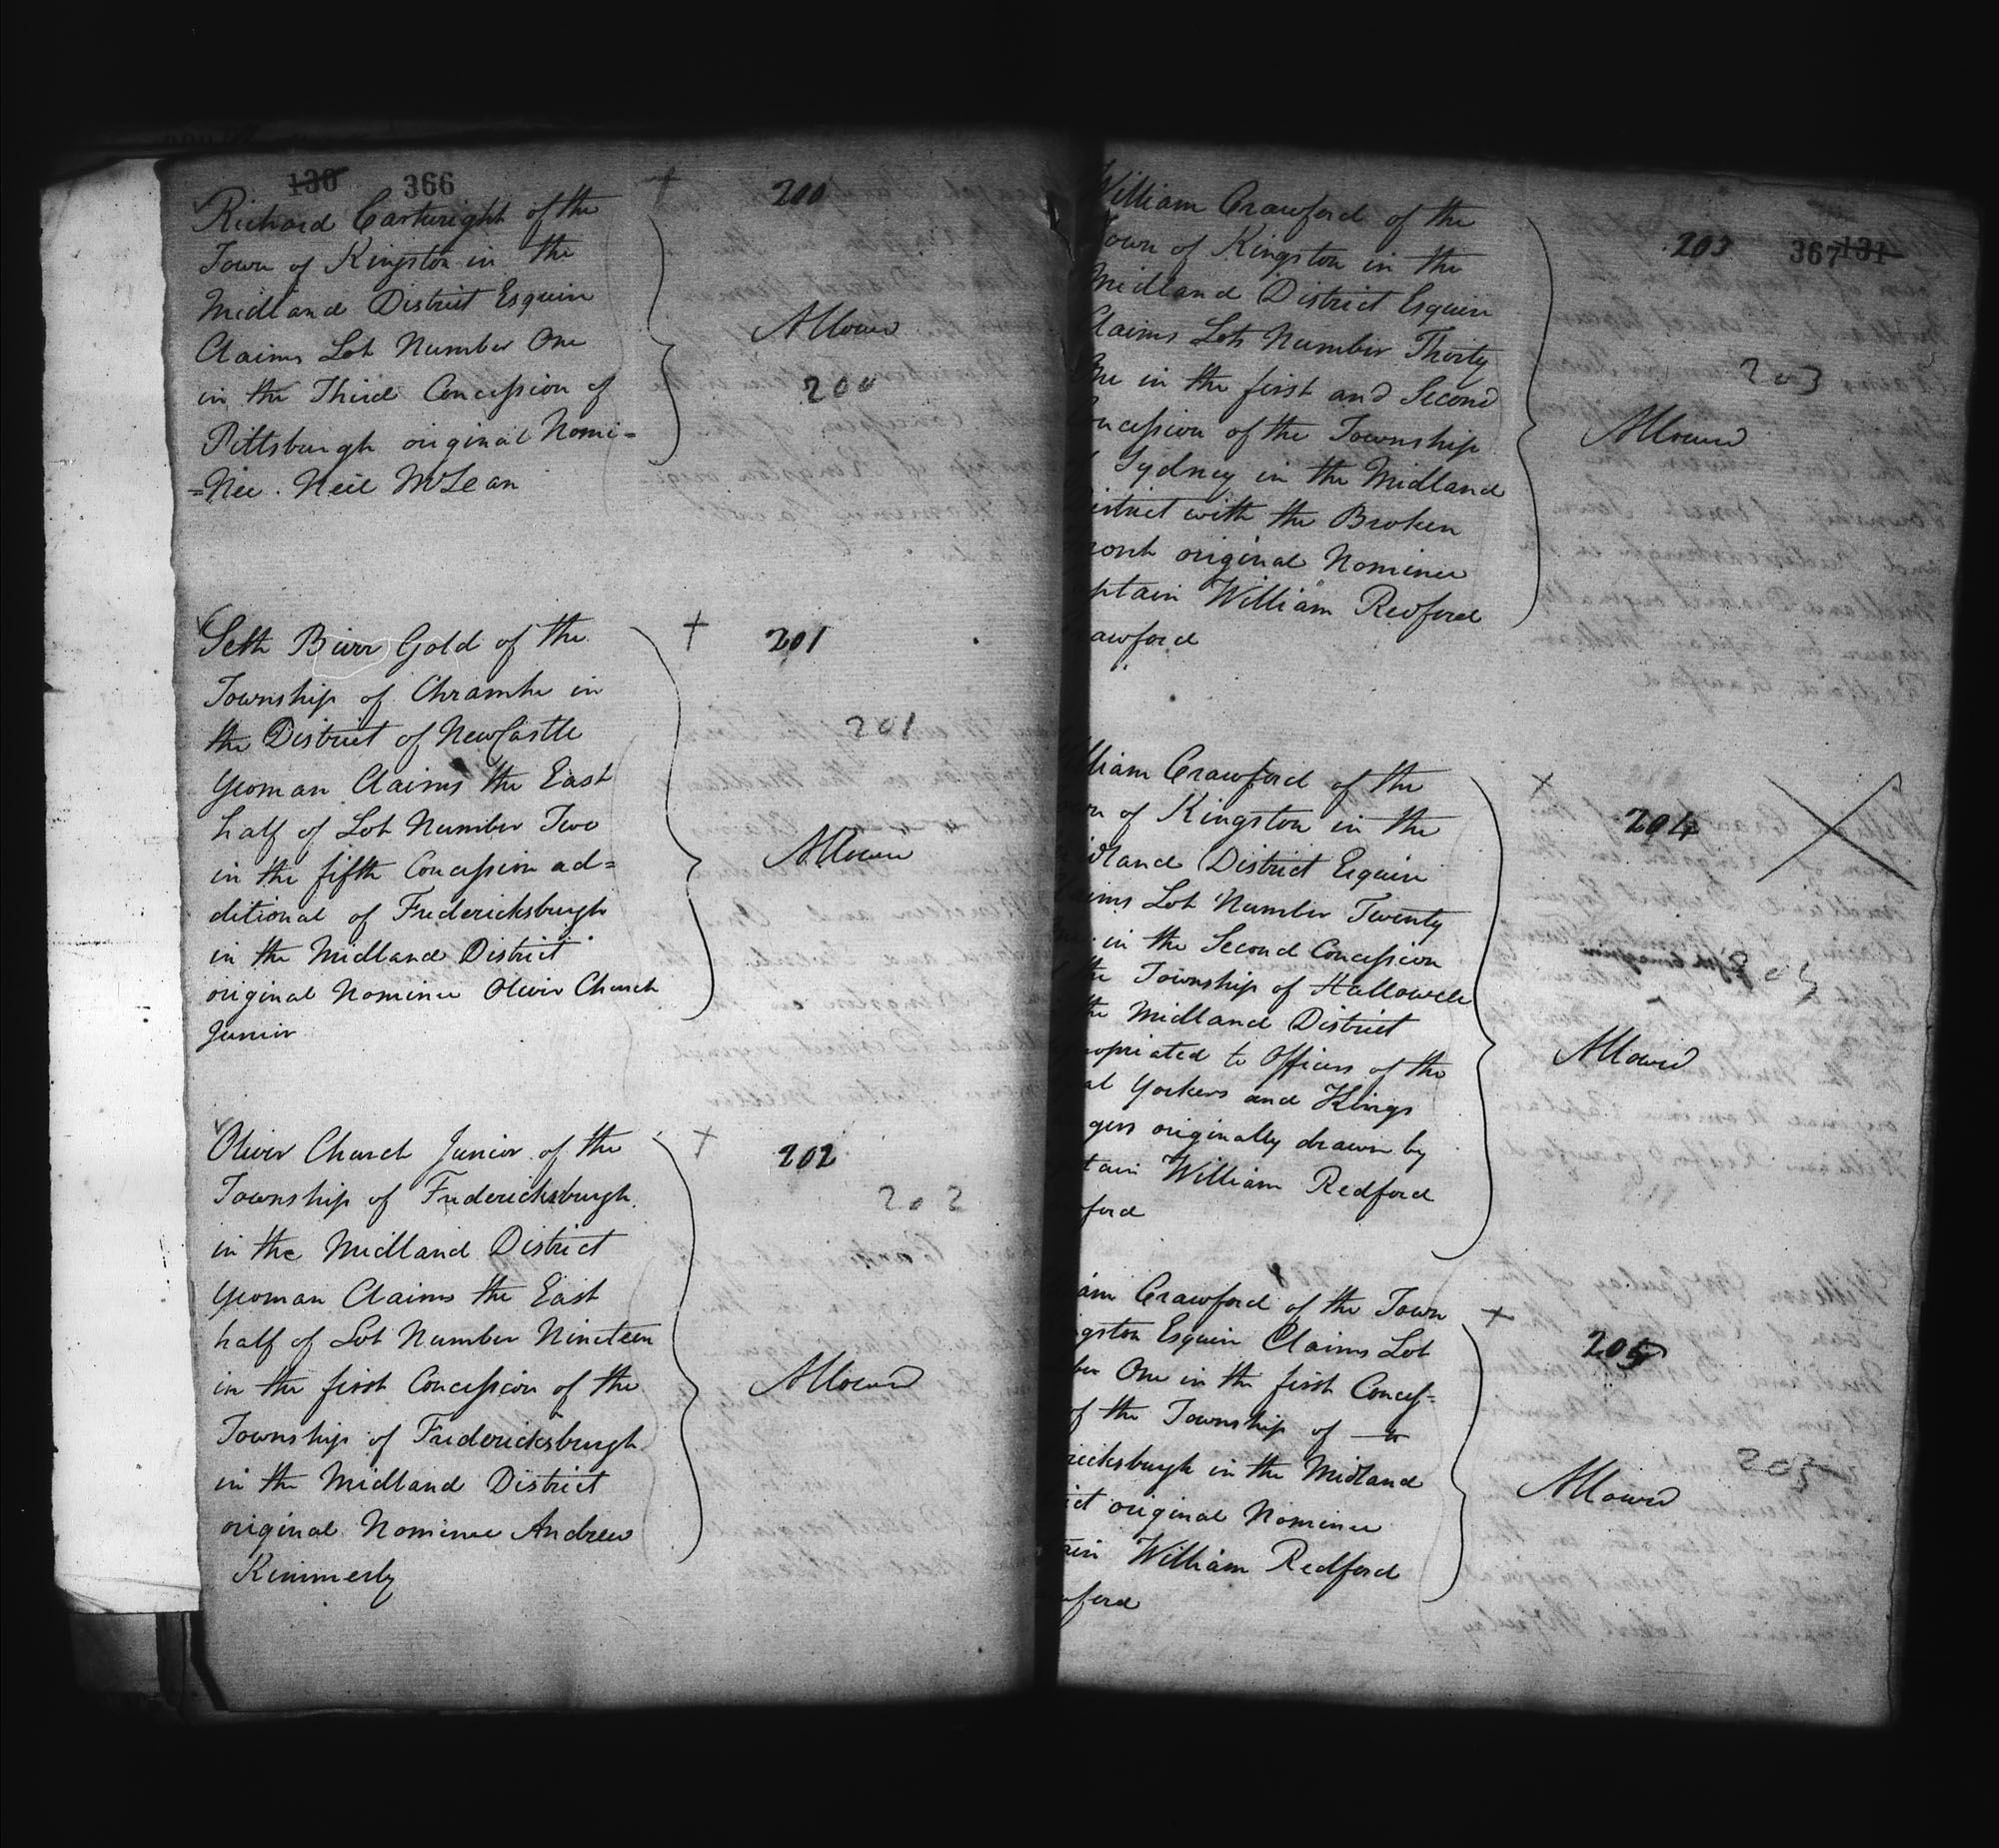 130 366
+ 200
Richard Cartwright of the
Town of Kingston in the
Midland District Esquire
Claims Lot Number One
in the Third Concession of
Pittsburgh original Nomi=
=Nee. Neil McLean
Allowed
200
+ 201
Seth Burr Gold of the
Township of Chramhe in
the District of NewCastle
Yeoman Claims the East
half of Lot Number Two
in the fifth Concession ad=
ditional of Fredericksburgh
in the Midland District
original Nominee Oliver Church
Junior
201
Allowed
+ 202
Oliver Church Junior of the
Township of Fredericksburgh
in the Midland District
Yeoman Claims the East
half of Lot Number Nineteen
in the first Concession of the
Township of Fredericksburgh
in the Midland District
original Nominee Andrew
Kimmerly
202
Allowed
203 367 131
William Crawford of the
Town of Kingston in the
Midland District Esquire
Claims Lots Number Thirty
One in the first and Second
oncession of the Township
Sydney in the Midland
istrict with the Broken
ront original Nominee
ptain William Redford
awford
203
Allowed
× 204
lliam Crawford of the
n of Kingston in the
idland District Esquire
ims Lot Number Twenty
in the Second Concession
the Township of Hallowell
the Midland District
ropriated to Officers of the
al Yorkers and Kings
gers originally drawn by
tain William Redford
ford
Allowed
+ 205
iam Crawford of the Town
gston Esquire Claims Lot
ber One in the first Conces=
of the Township of
ricksburgh in the Midland
ict original Nominee
tain William Redford
ford
205
Allowed